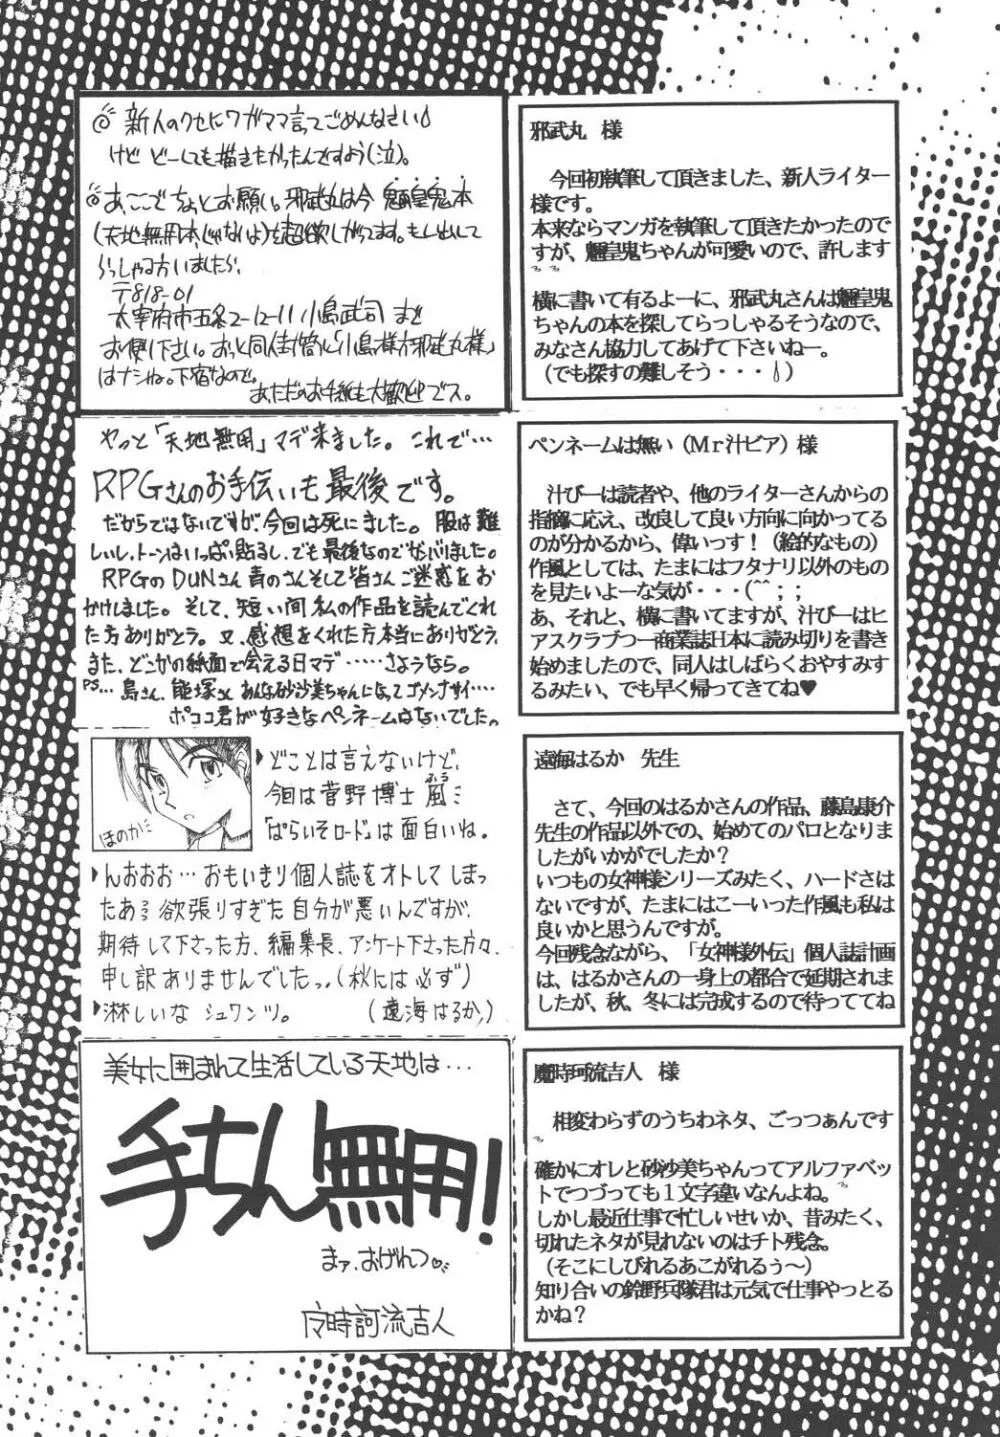 ◎新人のクセにワガママ言ってごめんなさい
けど どーしても描きたかったんですよう(泣)。
◎あ、ここでちょっとお願い。邪武丸は今 魎皇鬼本
(天地無用本じゃないよ)を超欲しがってます。もし出して
らっしゃる方いましたら、
〒818-01
太宰府市五条2-12-11 小島武司 まで
お便り下さい。おっと同人封筒に「小島様方邪武丸様」
はナシね。下宿なので。
あ、ただのお手紙も大歓迎デス。
邪武丸 様
今回初執筆して頂きました、新人ライター
様です。
本来ならマンガを執筆して頂きたかったので
すが、魎皇鬼ちゃんが可愛いので、許します
横に書いて有るよーに、邪武丸さんは魎皇鬼
ちゃんの本を探してらっしゃるそうなので、
みなさん協力してあげて下さいねー。
(でも探すの難しそう・・・)
やっと「天地無用」マデ来ました。これで…
RPGさんのお手伝いも最後です。
だからではないですが、今回は死にました。服は難
しいし、トーンはいっぱい貼るし、でも最後なのでガンバりました。
RPGのDUNさん 青のさんそして皆さんご迷惑をお
かけしました。そして、短い間 私の作品を読んでくれ
た方ありがとう。又、感想をくれた方本当にありがとう。
また、どこかの紙面で会える日マデ……さようなら。
PS… 島さん、能塚さん あんな砂沙美ちゃんになってゴメンナサイ……
ポココ君が好きなペンネームはないでした。
ペンネームは無い(Mr汁ビア)様
汁びーは読者や、他のライターさんからの
指摘に応え、改良して良い方向に向かってる
のが分かるから、偉いっす!(絵的なもの)
作風としては、たまにはフタナリ以外のもの
を見たいよーな気が・・・(^^;;
あ、それと、横に書いてますが、汁びーはヒ
アスクラブつー商業誌日本に読み切りを書き
始めましたので、同人はしばらくおやすみす
るみたい、でも早く帰ってきてね♥
ほのか
どことは言えないけど、
今回は菅野博士風ふう
「ぱらいそロード」は面白いね。
んおおお… おもいきり個人誌をオトしてしまっ
たあ 欲張りすぎた自分が悪いんですが、
期待して下さった方、編集長、アンケート下さった方々、
申し訳ありませんでした。(秋には必ず)
淋しいな シュワンツ。 (遠海はるか)
遠海はるか 先生
さて、今回のはるかさんの作品、藤島康介
先生の作品以外での、始めてのパロとなりま
したがいかがでしたか?
いつもの女神様シリーズみたく、ハードさは
ないですが、たまにはこーいった作風も私は
良いかと思うんですが。
今回残念ながら、「女神様外伝」個人誌計画
は、はるかさんの一身上の都合で延期されま
したが、秋、冬には完成するので待っててね
美女に囲まれて生活している天地は…
手ちん無用!
まァ、おげんつ
魔時訶流吉人
魔時珂流吉人 様
相変わらずのうちわネタ、ごっつぁんです
確かにオレと砂沙美ちゃんってアルファベッ
トでつづっても1文字違いなんよね。
しかし最近仕事で忙しいせいか、昔みたく、
切れたネタが見れないのはチト残念。
(そこにしびれるあこがれるぅ〜)
知り合いの鈴野兵隊君は元気で仕事やっとる
かね?